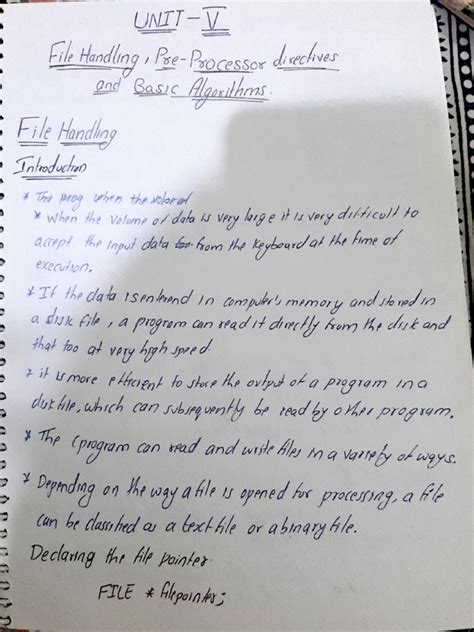 UNIT-V
File Handling, Pre-Processor directives
and Basic Algorithms.
File Handling
Introduction
* The prog when the volume of
* when the volume of data is very large it is very difficult to
accept the input data from the keyboard at the time of
execution.
* If the data is entered in computer's memory and stored in
a disk file, a program can read it directly from the disk and
that too at very high speed.
* it is more efficient to store the output of a program in a
disk file, which can subsequently be read by other program.
* The C program can read and write files in a variety of ways.
* Depending on the way a file is opened for processing, a file
can be classified as a text file or a binary file.
Declaring the file pointer.
FILE * filepointer;